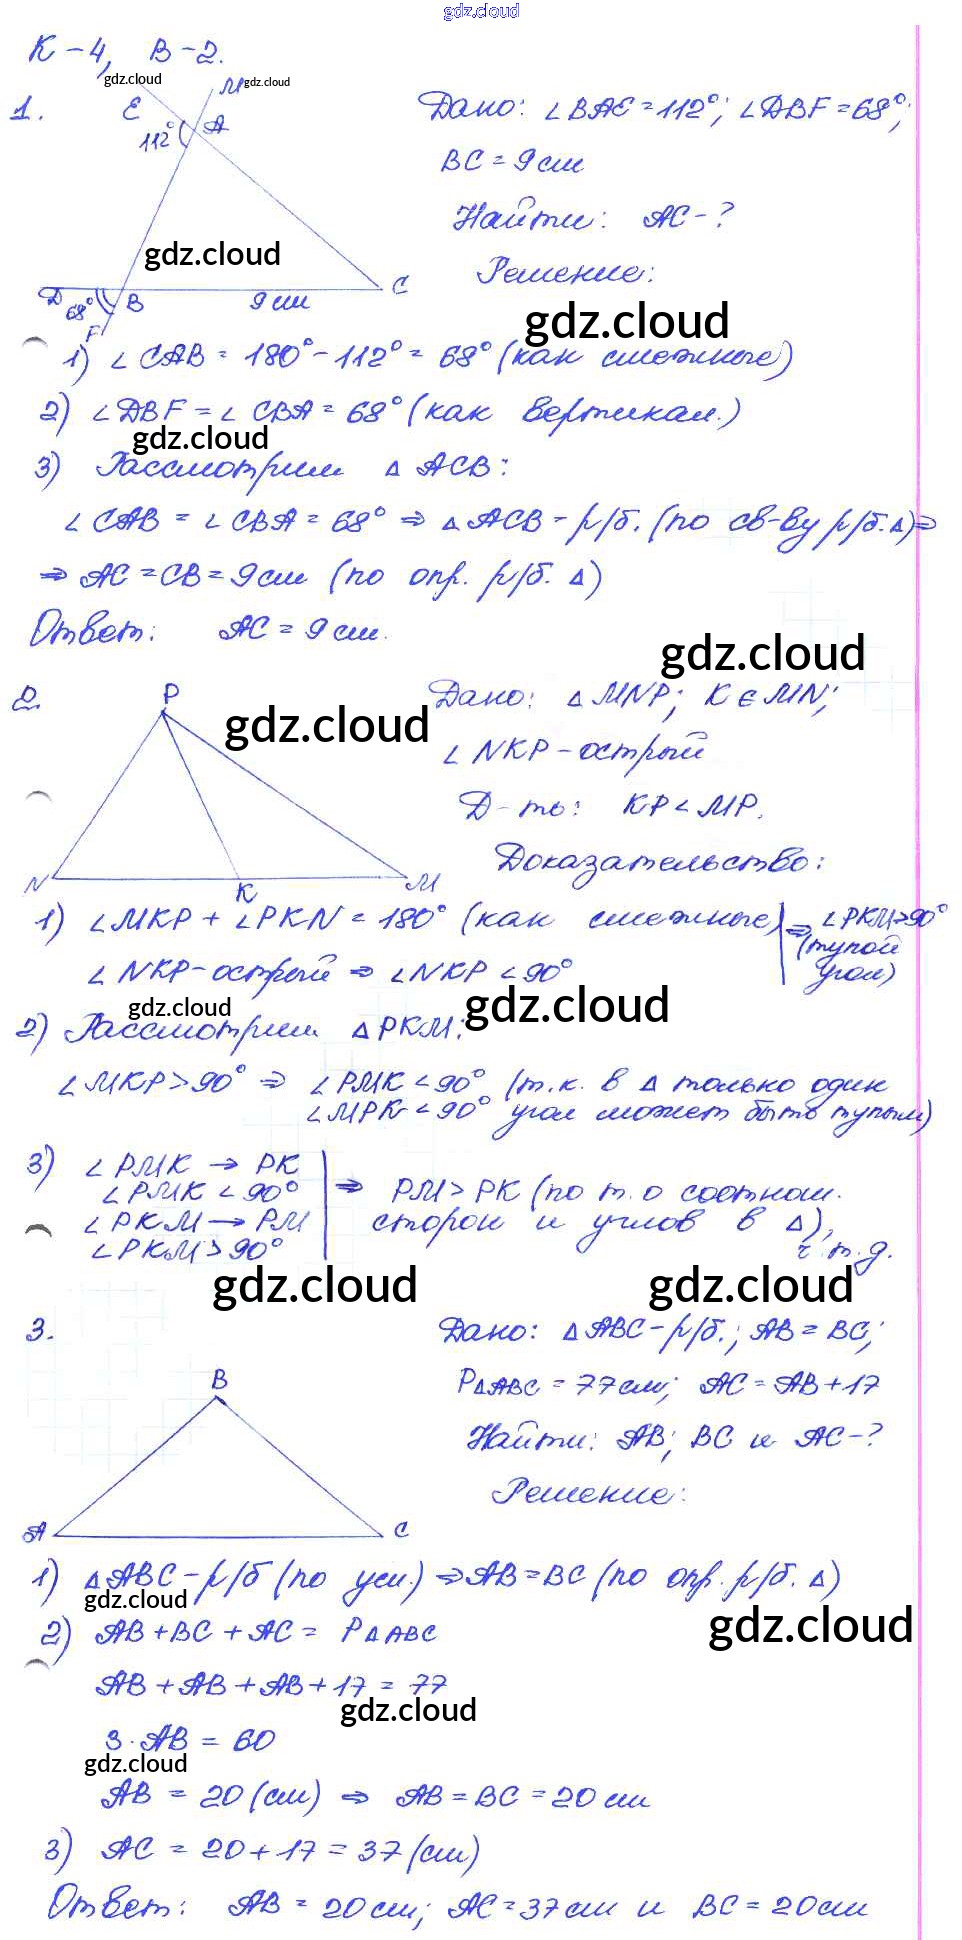 gdz.cloud
К-4, В-2.
gdz.cloud gdz.cloud
1.
E M A
112°
gdz.cloud
D 68° B 9 см C
F
Дано: ∠BAE = 112°; ∠DBF = 68°;
BC = 9 см
Найти: AC - ?
Решение:
gdz.cloud
1) ∠CAB = 180° - 112° = 68° (как смежные)
2) ∠DBF = ∠CBA = 68° (как вертикал.)
gdz.cloud
3) Рассмотрим △ACB:
∠CAB = ∠CBA = 68° ⇒ △ACB - р/б. (по св-ву р/б. △) ⇒
⇒ AC = CB = 9 см (по опр. р/б. △)
Ответ: AC = 9 см.
gdz.cloud
2.
P
gdz.cloud
N K M
Дано: △MNP; K ∈ MN;
∠NKP - острый
Д-ть: KP < MP.
Доказательство:
1) ∠MKP + ∠PKN = 180° (как смежные) | ⇒ ∠PKM > 90°
∠NKP - острый ⇒ ∠NKP < 90° | (тупой угол)
gdz.cloud gdz.cloud
2) Рассмотрим △PKM:
∠MKP > 90° ⇒ ∠PMK < 90° (т.к. в △ только один
∠MPK < 90° угол может быть тупым)
3) ∠PMK → PK
∠PMK < 90° | ⇒ PM > PK (по т. о соотнош.
∠PKM → PM | сторон и углов в △),
∠PKM > 90° ч.т.д.
gdz.cloud gdz.cloud
3.
B
A C
Дано: △ABC - р/б.; AB = BC;
P△ABC = 77 см; AC = AB + 17
Найти: AB; BC и AC - ?
Решение:
1) △ABC - р/б (по усл.) ⇒ AB = BC (по опр. р/б. △)
gdz.cloud gdz.cloud
2) AB + BC + AC = P△ABC
AB + AB + AB + 17 = 77
gdz.cloud
3 · AB = 60
gdz.cloud
AB = 20 (см) ⇒ AB = BC = 20 см
3) AC = 20 + 17 = 37 (см)
Ответ: AB = 20 см; AC = 37 см и BC = 20 см